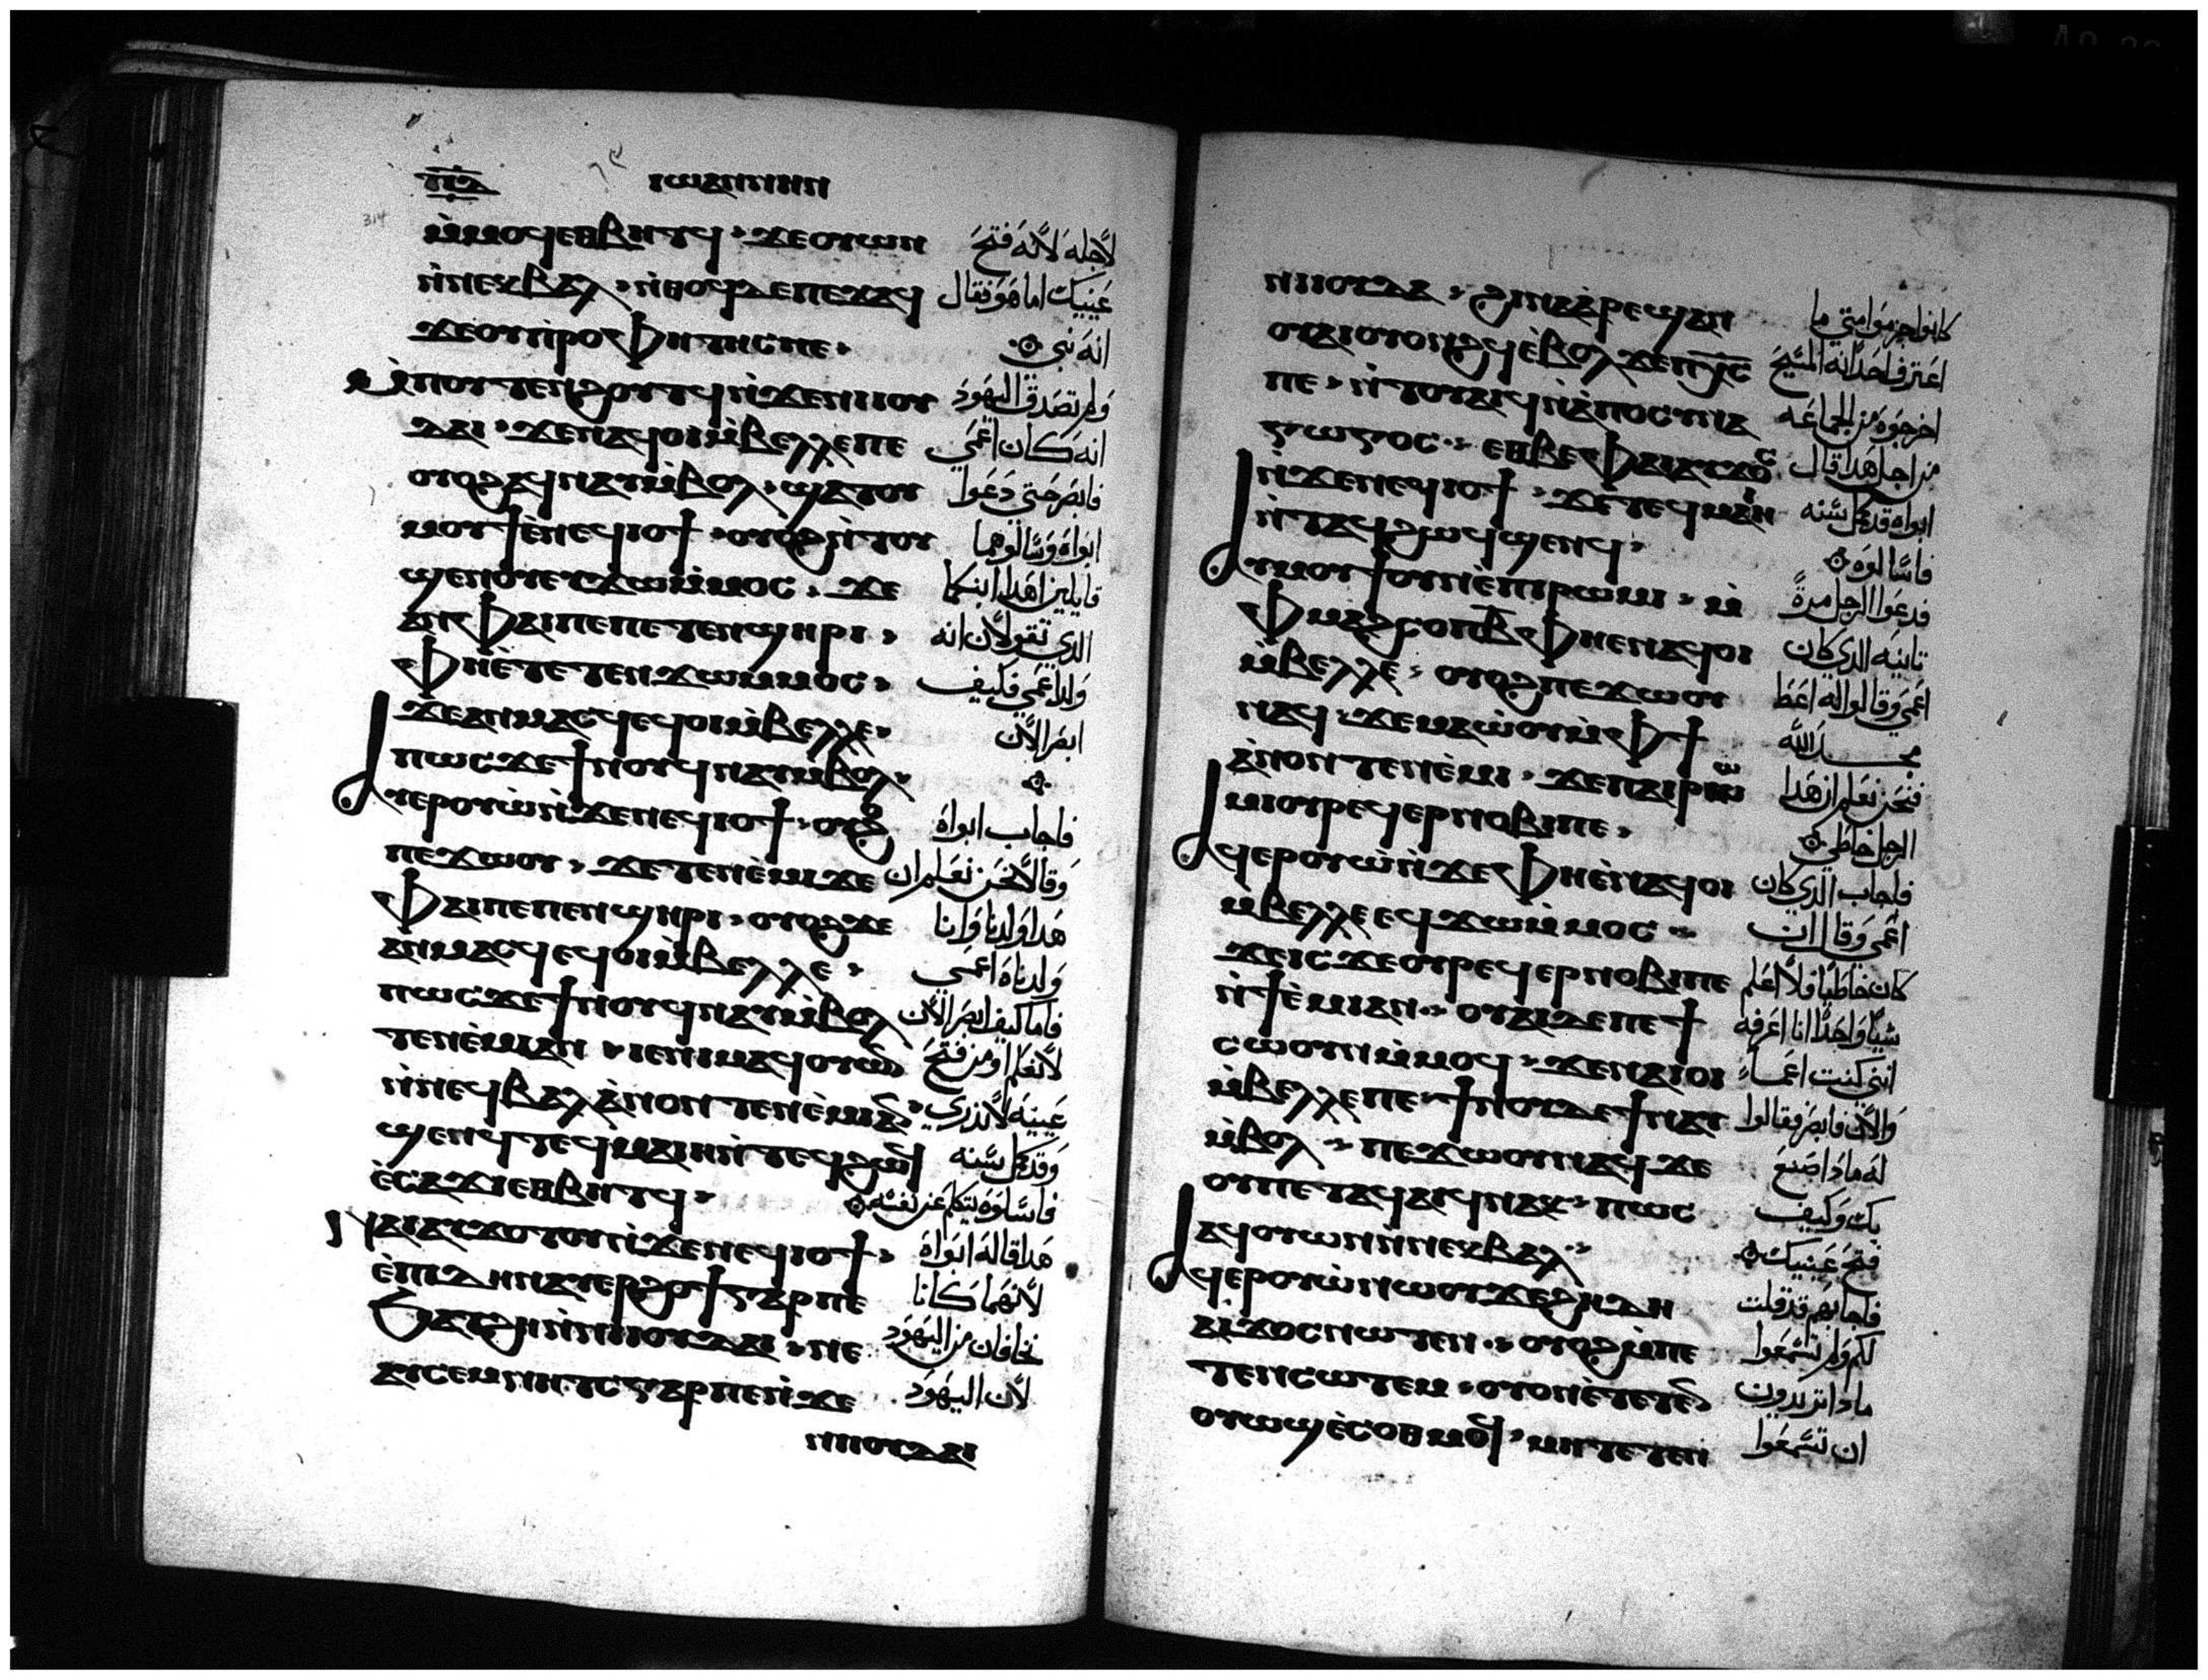 ⲓⲱⲁⲛⲛⲏⲛ
314
ⲙ̀ⲙⲟϥⲉⲑⲃⲏⲧϥ ϫⲉⲟⲩⲱⲛ
ⲛ̀ⲛⲉⲕⲃⲁⲗ ⲛ̀ⲑⲟϥⲇⲉⲡⲉϫⲁϥ
ϫⲉⲟⲩⲡⲣⲟⲫⲏⲧⲏⲥⲡⲉ
ⲙ̀ⲡⲟⲩⲧⲉⲛϩⲟⲩⲧϥⲛ̀ϫⲉⲛⲓⲓⲟⲩ
ⲇⲁⲓ ϫⲉⲛⲁϥⲟⲓⲙ̀ⲃⲉⲗⲗⲉⲡⲉ
ⲟⲩⲟϩⲁϥⲛⲁⲩⲙ̀ⲃⲟⲗ ϣⲁⲧⲟⲩ
ⲙⲟⲩϯⲉ̀ⲛⲉϥⲓⲟϯ ⲟⲩⲟϩⲛ̀ⲧⲟⲩ
ϣⲉⲛⲟⲩⲉⲩϫⲱⲙ̀ⲙⲟⲥ ϫⲉ
ⲁⲛⲫⲁⲓⲡⲉⲡⲉⲧⲉⲛϣⲏⲣⲓ
ⲫⲏⲉ̀ⲧⲉⲧⲉⲛϫⲱⲙ̀ⲙⲟⲥ
ϫⲉⲁⲛⲙⲁⲥϥⲉϥⲟⲓⲙ̀ⲃⲉⲗⲗⲉ
ⲡⲱⲥϫⲉϯⲛⲟⲩϥⲛⲁⲩⲙ̀ⲃⲟⲗ
ⲁⲩⲉⲣⲟⲩⲱ̀ⲛ̀ϫⲉⲛⲉϥⲓⲟϯ ⲟⲩⲟϩ
ⲡⲉϫⲱⲟⲩ ϫⲉⲧⲉⲛⲉ̀ⲙⲓϫⲉ
ⲫⲁⲓⲡⲉⲡⲉⲛϣⲏⲣⲓ ⲟⲩⲟϩϫⲉ
ⲁⲛⲙⲁⲥϥⲉϥⲟⲓⲙ̀ⲃⲉⲗⲗⲉ
ⲡⲱⲥϫⲉϯⲛⲟⲩϥⲛⲁⲩⲙ̀ⲃⲟⲗ
ⲧⲉⲛⲉ̀ⲙⲓⲁⲛ ⲓⲉⲛⲓⲙⲁϥⲟⲩⲱⲛ
ⲛ̀ⲛⲉϥⲃⲁⲗⲁ̀ⲛⲟⲛⲧⲉⲛⲉ̀ⲙⲓⲁⲛ
ϣⲉⲛϥⲧⲉϥⲙⲁⲓⲏⲛ̀ⲧⲉϥϩⲱϥ
ⲉ̀ⲥⲁϫⲓⲉⲑⲃⲏⲧϥ
ⲛⲁⲓⲁⲩϫⲟⲧⲟⲩⲛ̀ϫⲉⲛⲉϥⲓⲟϯ
ⲉ̀ⲡⲓⲇⲏⲛⲁⲩⲉⲣϩⲟϯⲅⲁⲣⲡⲉ
ϧⲁⲧϩⲏⲛ̀ⲛⲓⲓⲟⲩⲇⲁⲓ ⲛⲉ
ⲁⲩⲥⲉⲙⲛⲏⲧⲥⲅⲁⲣⲡⲉⲛ̀ϫⲉ
ⲛⲓⲓⲟⲩⲇⲁⲓ
لاجله لانه فتح
عينيك اما هو فقال
انه نبي
ولم تصدق اليهود
انه كان اعمي
فابصر حتي دعوا
ابواه وسالوهما
قايلين اهدا ابنكما
الدي تقولان انه
ولد اعمي فكيف
ابصر الان
فاجاب ابواه
وقالا نحن نعلم ان
هدا ولدنا واننا
ولدناه اعمي
فاما كيف ابصر الان
لا نعلم او من فتح
عينيه لا ندري
وقد كمل سنه
فاسالوه يتكلم عن نفسه
هدا قاله ابواه
لانهما كانا
يخافان من اليهود
لان اليهود
ⲛⲓⲓⲟⲩⲇⲁⲓ ϩⲓⲛⲁⲁⲣⲉϣⲁⲛ
ⲟⲩⲁⲓⲟⲩⲟⲛϩϥⲉ̀ⲃⲟⲗϫⲉⲡⲭ̅ⲥ̅
ⲡⲉ ⲛ̀ⲧⲟⲩⲁⲓϥⲛ̀ⲁ̀ⲡⲟⲥⲩⲛⲁ
ⲅⲱⲅⲟⲥ ⲉⲑⲃⲉⲫⲁⲓⲁⲩϫⲟⲥ
ⲛ̀ϫⲉⲛⲉϥⲓⲟϯ ϫⲉⲧⲉϥⲙⲁⲓⲏ
ⲛ̀ⲧⲁϥϩⲱϥϣⲉⲛϥ
ⲁⲩⲙⲟⲩϯⲟⲩⲛⲉ̀ⲡⲓⲣⲱⲙⲓ ⲙ̀
ⲫⲙⲁϩⲥⲟⲡⲃ̅ⲫⲏⲉⲛⲁϥⲟⲓ
ⲙ̀ⲃⲉⲗⲗⲉ ⲟⲩⲟϩⲡⲉϫⲱⲟⲩ
ⲛⲁϥ ϫⲉⲙⲁⲱ̀ⲟⲩⲙ̀ⲫϯ
ⲁ̀ⲛⲟⲛⲧⲉⲛⲉ̀ⲙⲓ ϫⲉⲡⲁⲓⲣⲱ
ⲙⲓⲟⲩⲣⲉϥⲉⲣⲛⲟⲃⲓⲡⲉ
ⲁϥⲉⲣⲟⲩⲱ̀ⲛ̀ϫⲉⲫⲏⲉ̀ⲛⲁϥⲟⲓ
ⲙ̀ⲃⲉⲗⲗⲉⲉϥϫⲱⲙ̀ⲙⲟⲥ
ϫⲉⲓⲥϫⲉⲟⲩⲣⲉϥⲉⲣⲛⲟⲃⲓⲡⲉ
ⲛ̀ϯⲉ̀ⲙⲓⲁⲛ ⲟⲩⲁⲓⲇⲉⲡⲉϯ
ⲥⲱⲟⲩⲛⲙ̀ⲙⲟϥ ϫⲉⲛⲁⲓⲟⲓ
ⲙ̀ⲃⲉⲗⲗⲉⲡⲉ ϯⲛⲟⲩⲇⲉϯⲛⲁⲩ
ⲙ̀ⲃⲟⲗ ⲡⲉϫⲱⲟⲩⲛⲁϥϫⲉ
ⲟⲩⲡⲉⲧⲁϥⲁⲓϥⲛⲁⲕ ⲡⲱⲥ
ⲁϥⲟⲩⲱⲛⲛ̀ⲛⲉⲕⲃⲁⲗ
ⲁϥⲉⲣⲟⲩⲱ̀ⲛⲱⲟⲩϫⲉϩⲏⲇⲏ
ⲁⲓϫⲟⲥⲛⲱⲧⲉⲛ ⲟⲩⲟϩⲙ̀ⲡⲉ
ⲧⲉⲛⲥⲱⲧⲉⲙ ⲟⲩⲟⲛⲉ̀ⲧⲉⲧⲉⲛ
ⲟⲩⲱϣⲉ̀ⲥⲟⲑⲙⲉϥ ⲙⲏⲧⲉⲧⲉⲛ
كانوا جزموا متي ما
اعترف احد انه المسيح
اخرجوه من الجماعه
من اجل هدا قال
ابواه قد كمل سنه
فاسالوه
فدعوا الرجل مرة
تانيه الدي كان
اعمي وقالوا له اعط
مجد الله
فنحن نعلم ان هدا
الرجل خاطي
فاجاب الدي كان
اعمي وقال ان
كان خاطيا فلا اعلم
شيا واحدا انا اعرفه
انني كنت اعما
والان فابصر فقالوا
له مادا صنع
بك وكيف
فتح عينيك
فاجابهم قد قلت
لكم ولم تسمعوا
مادا تريدون
ان تسمعوا